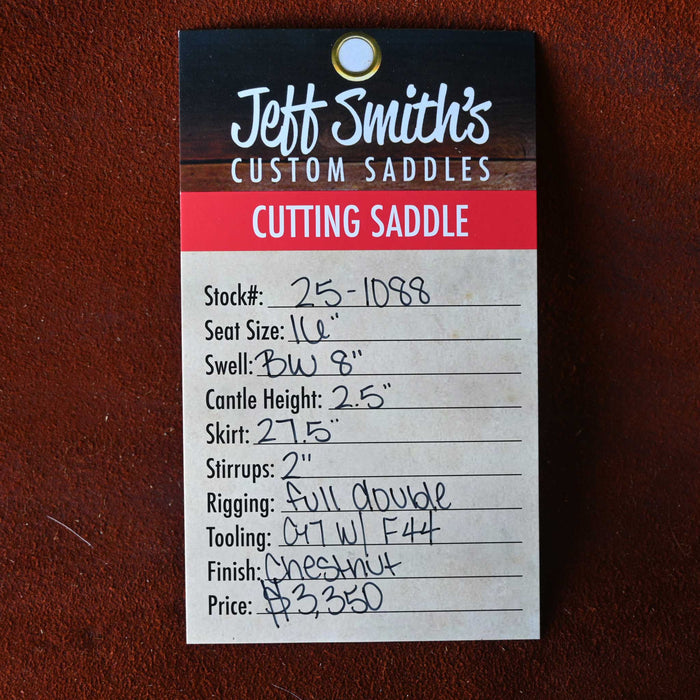 Jeff Smith's
CUSTOM SADDLES
CUTTING SADDLE
Stock#: 25-1088
Seat Size: 16"
Swell: BW 8"
Cantle Height: 2.5"
Skirt: 27.5"
Stirrups: 2"
Rigging: full double
Tooling: G17 W/ F44
Finish: Chestnut
Price: $3,350